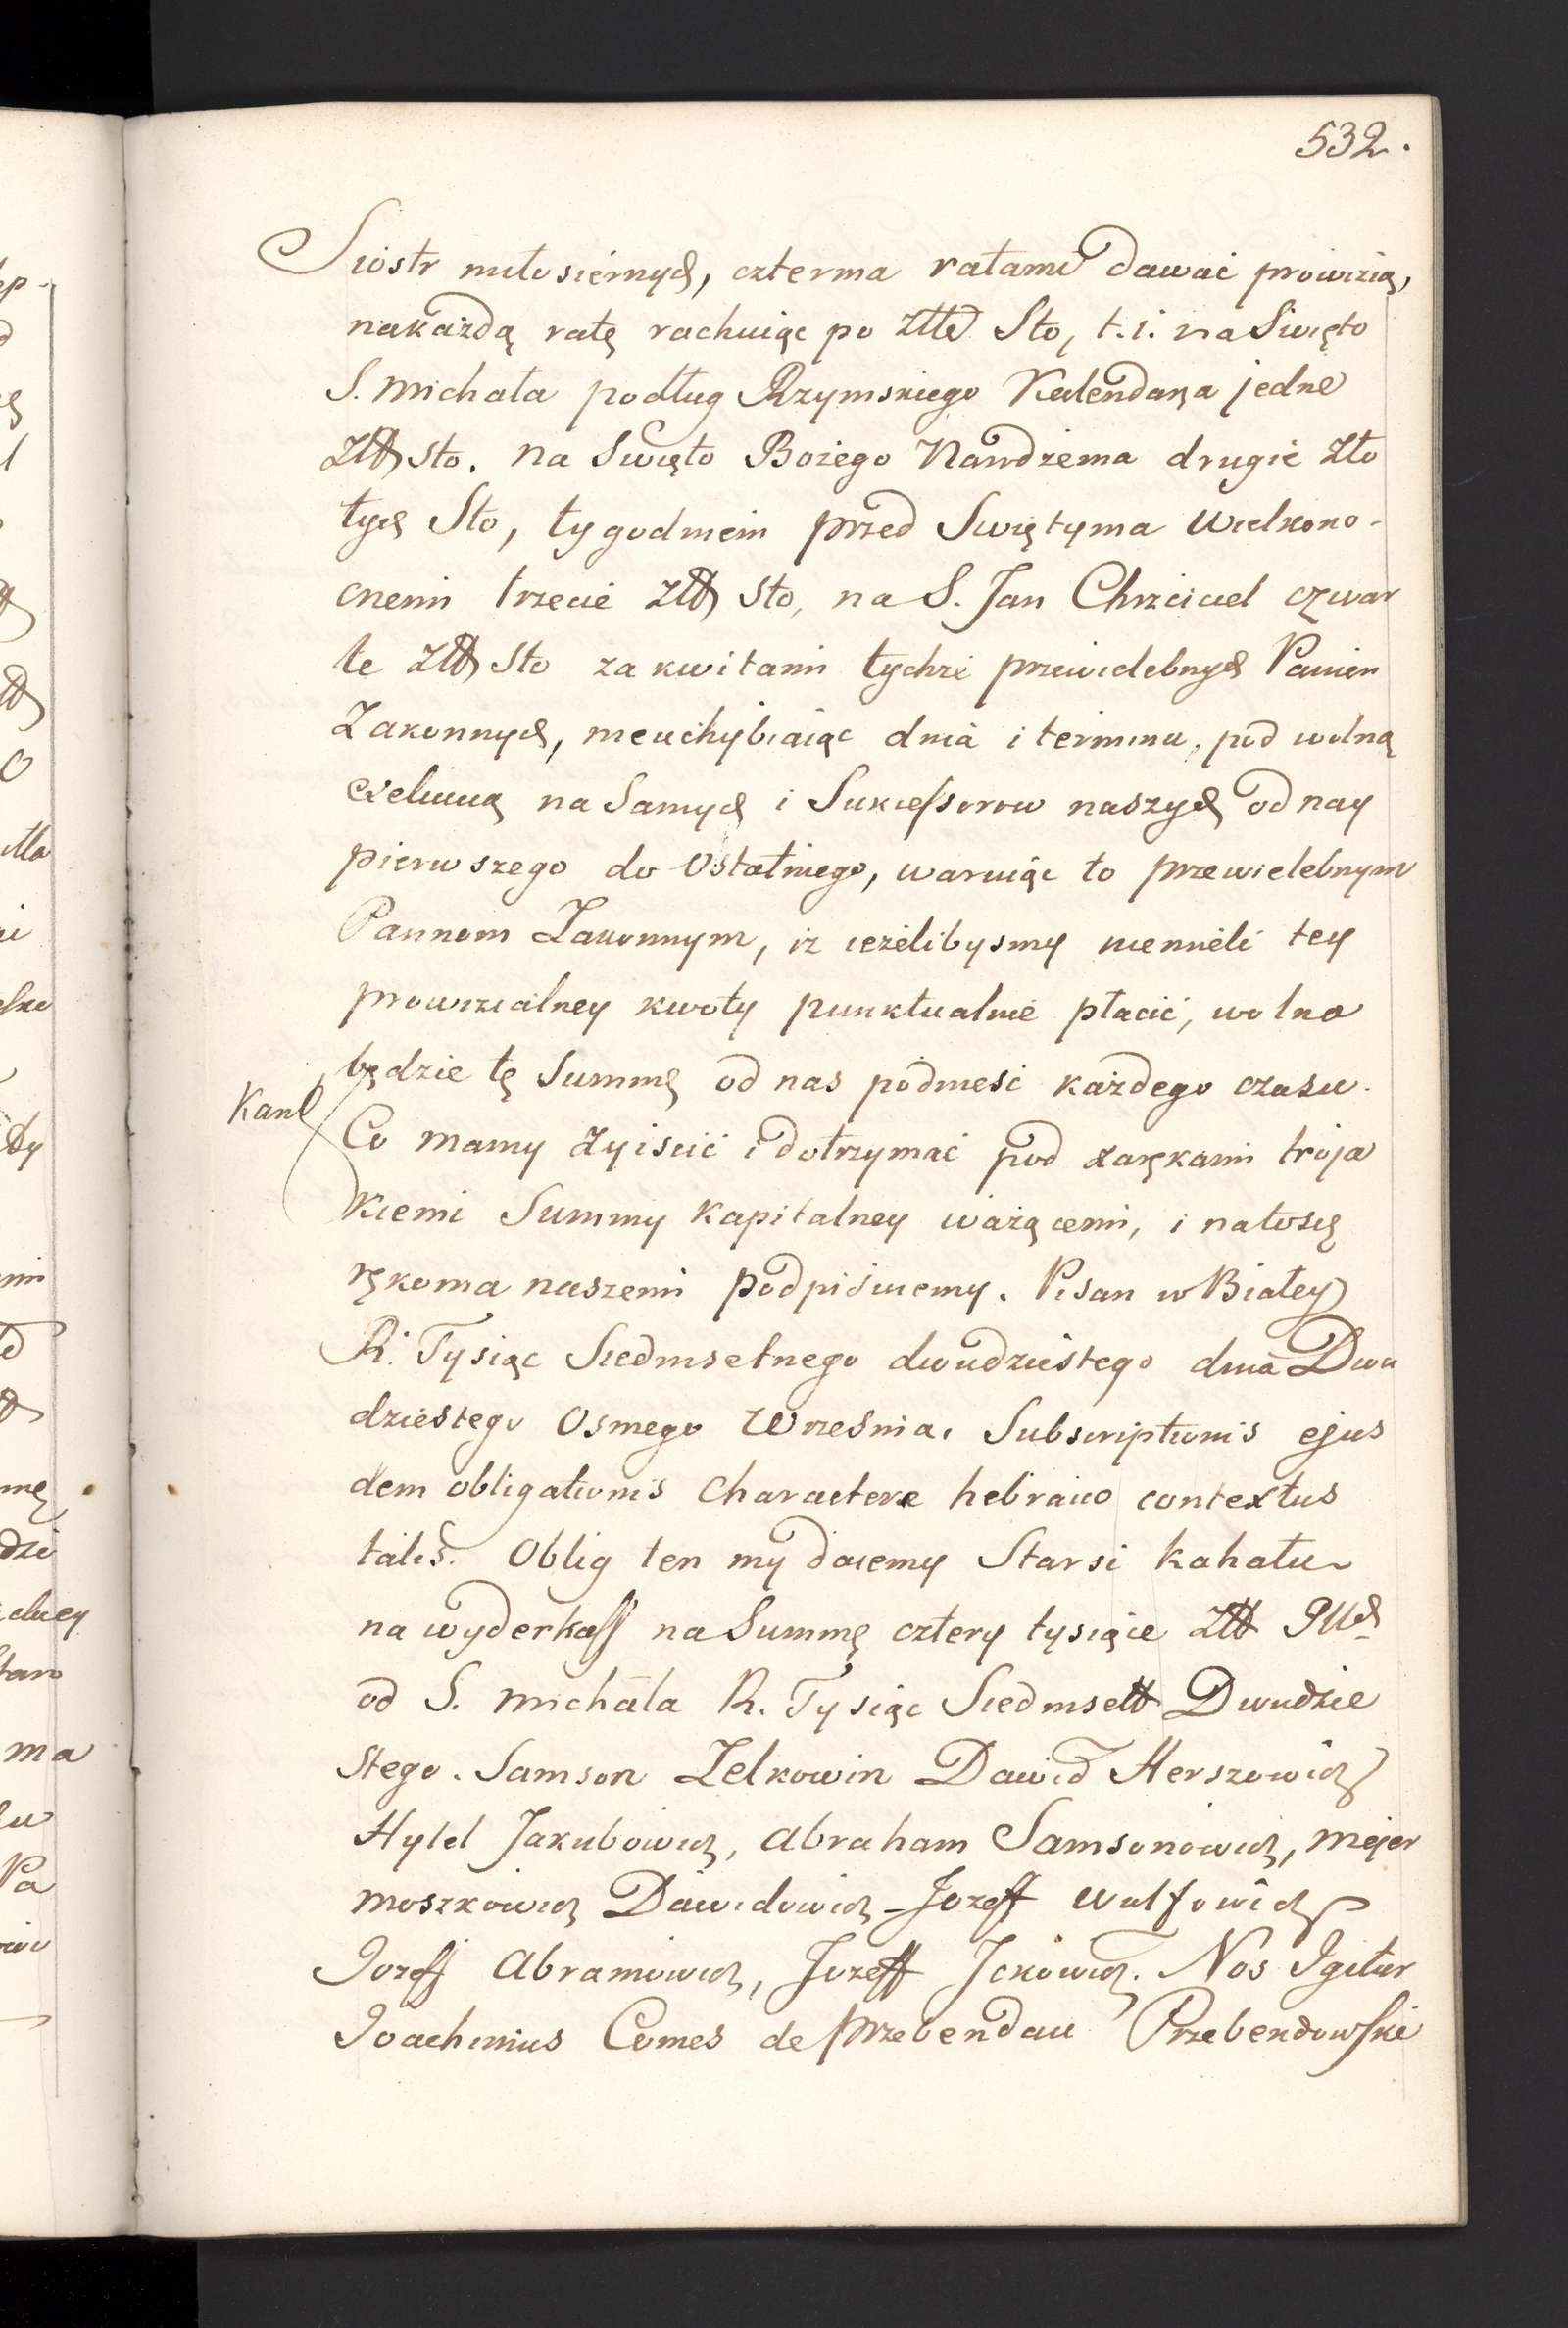 532.
Siostr miłosiernych, czterma ratami dawać prowizią,
nakażdą ratę rachuiąc po Złłt Sto, t.i. na Swięto
S. Michała podług Rzymskiego Kalendarza jedne
Złłt Sto. na Swięto Bożego Narodzenia drugie Zło
tych Sto, tygodniem przed Swiętyma Wielkono-
cnemi trzecie Złłt Sto, na S. Jan Chrzciciel czwar
te Złłt Sto za kwitami tychże przewielebnych Panien
Zakonnych, nieuchybiaiąc dnia i terminu, pod wolną
exekucią na Samych i Sukcessorow naszych od nay
pierwszego do Ostatniego, waruiąc to przewielebnym
Pannom Zakonnym, iż ieżelibysmy niemieli tey
prowizialney kwoty punktualnie płacić, wolno
będzie tę Summę od nas podnieść każdego czasu.
Co mamy zyiścić i dotrzymać pod zarękami troja
kiemi Summy Kapitalney ważącemi, i natosię
rękoma naszemi podpisuiemy. Pisan w Białey
R. Tysiąc Siedmsetnego dwudziestego dnia Dwu
dziestego Osmego Września. Subscriptionis ejus
dem obligationis Charactere hebraico contextus
talis. Oblig ten my daiemy Starsi Kahału
na wyderkaff na Summę cztery tysiące Złłt Pllch
od S. Michała R. Tysiąc Siedmsett Dwudzie
stego. Samson Zelkowin Dawid Herszowicz
Hylel Jakubowicz, Abraham Samsonowicz, Mejer
Moszkowicz Dawidowicz Jozeff Wulfowicz
Jozeff Abramowicz, Jozeff Jckowicz. Nos Igitur
Joachimus Comes de Przebendau Przebendowski